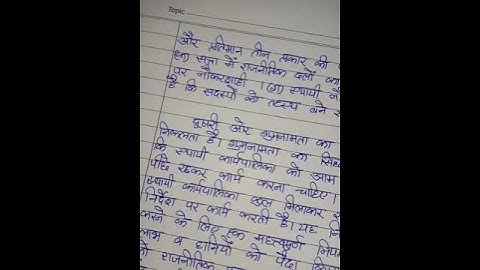 Topic
और प्रतिमान तीन प्रकार की
सत्ता में राजनीतिक दलों का
पर नौकरशाही । (ग) स्थायी
है कि सदस्यों को तटस्थ बने
दूसरी ओर गुमनामता का
निकलता है। गुमनामता का
कि स्थायी कार्यपालिका को आम
पीछे रहकर कार्य करना चाहिए।
स्थायी कार्यपालिका कुल मिलाकर
निर्देश पर कार्य करती है। यह
करने के लिए एक महत्वपूर्ण
लाभ व हानियों को पैदा
को राजनीतिक